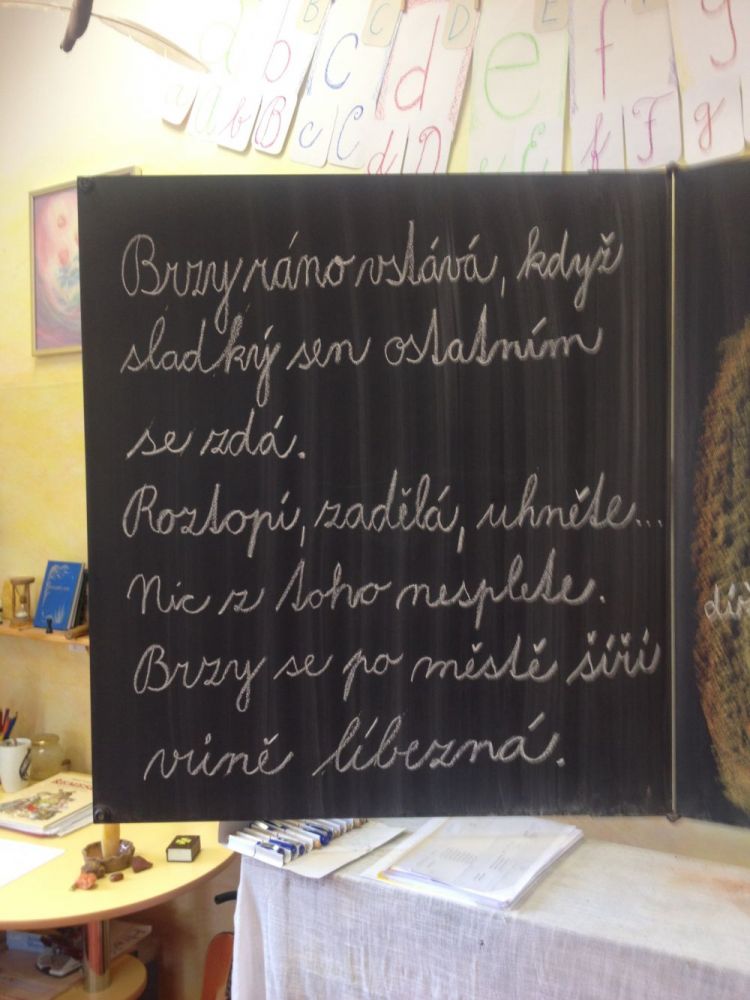 B C D E
a b c d e f g
a A b B c C d D e E f F g
Brzy ráno vstává, když
sladký sen ostatním
se zdá.
Roztopí, zadělá, uhněte...
Nic z toho nesplete.
Brzy se po městě šíří
vůně líbezná.